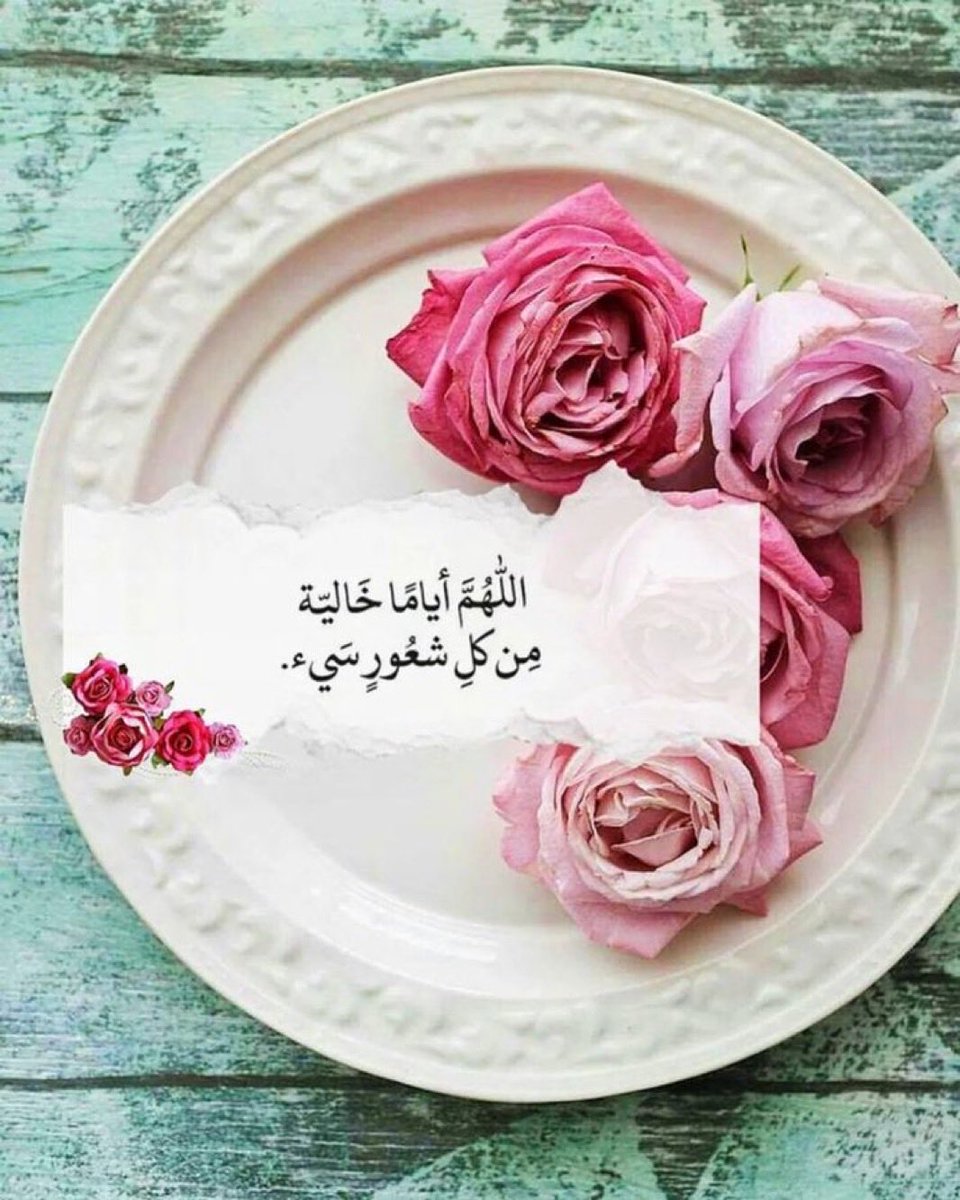 اللهُمَّ أيامًا خَاليّة
مِن كلِ شعُورٍ سَيء.